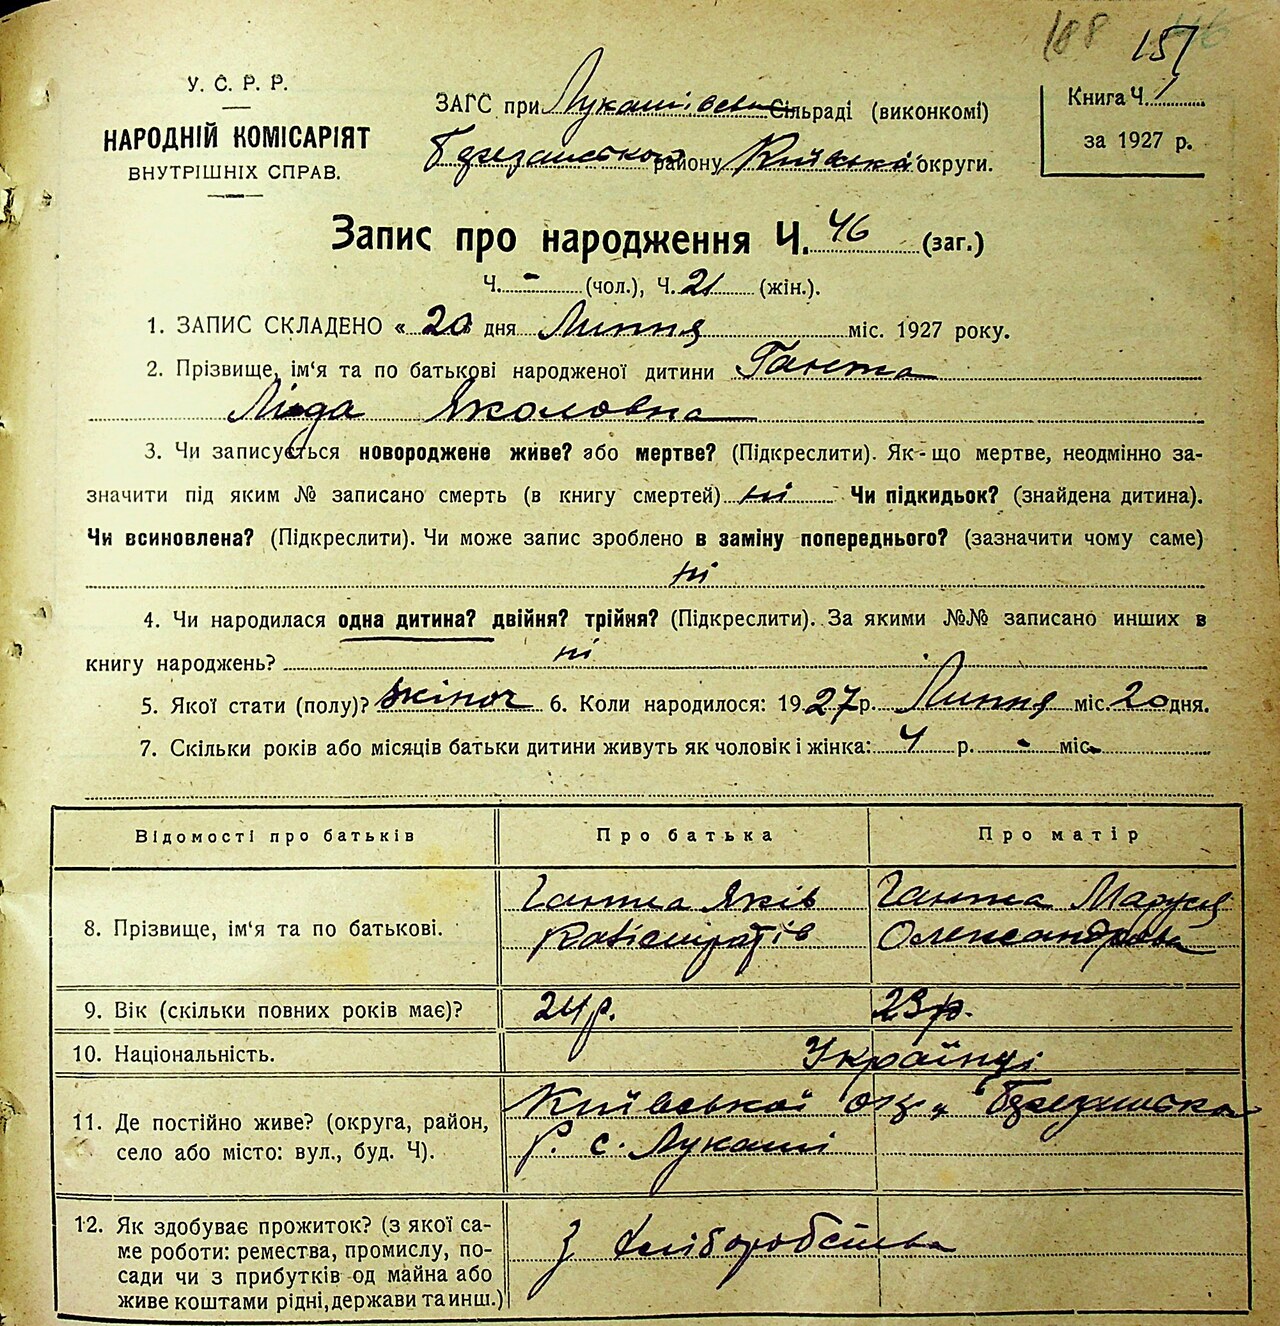 188 46
151
У. С. Р. Р.
НАРОДНІЙ КОМІСАРІЯТ
ВНУТРІШНІХ СПРАВ.
ЗАГС при Лукашівськ. Сільраді (виконкомі)
району Київської округи.
Книга Ч. 1
за 1927 р.
Запис про народження Ч. 46 (заг.)
Ч. - (чол.), Ч. 21 (жін.).
1. ЗАПИС СКЛАДЕНО « 20 » дня Липня міс. 1927 року.
2. Прізвище, ім'я та по батькові народженої дитини Ганжа
Ліда Яковловна
3. Чи записується новороджене живе? або мертве? (Підкреслити). Як-що мертве, неодмінно за-
значити під яким № записано смерть (в книгу смертей) ні Чи підкидьок? (знайдена дитина).
Чи всиновлена? (Підкреслити). Чи може запис зроблено в заміну попереднього? (зазначити чому саме)
ні
4. Чи народилася одна дитина? двійня? трійня? (Підкреслити). За якими №№ записано инших в
книгу народжень? ні
5. Якої стати (полу)? жіноч 6. Коли народилося: 1927 р. Липня міс. 20 дня.
7. Скільки років або місяців батьки дитини живуть як чоловік і жінка: 4 р. - міс.
Відомості про батьків Про батька Про матір
8. Прізвище, ім'я та по батькові. Ганжа Яків Ганжа Маруся
Олександровна
9. Вік (скільки повних років має)? 24 р. 23 р.
10. Національність. Українці
11. Де постійно живе? (округа, район, Київської окр.
село або місто: вул., буд. Ч). р. с. Лукаші
12. Як здобуває прожиток? (з якої са-
ме роботи: ремества, промислу, по- з хліборобства
сади чи з прибутків од майна або
живе коштами рідні, держави та инш.)